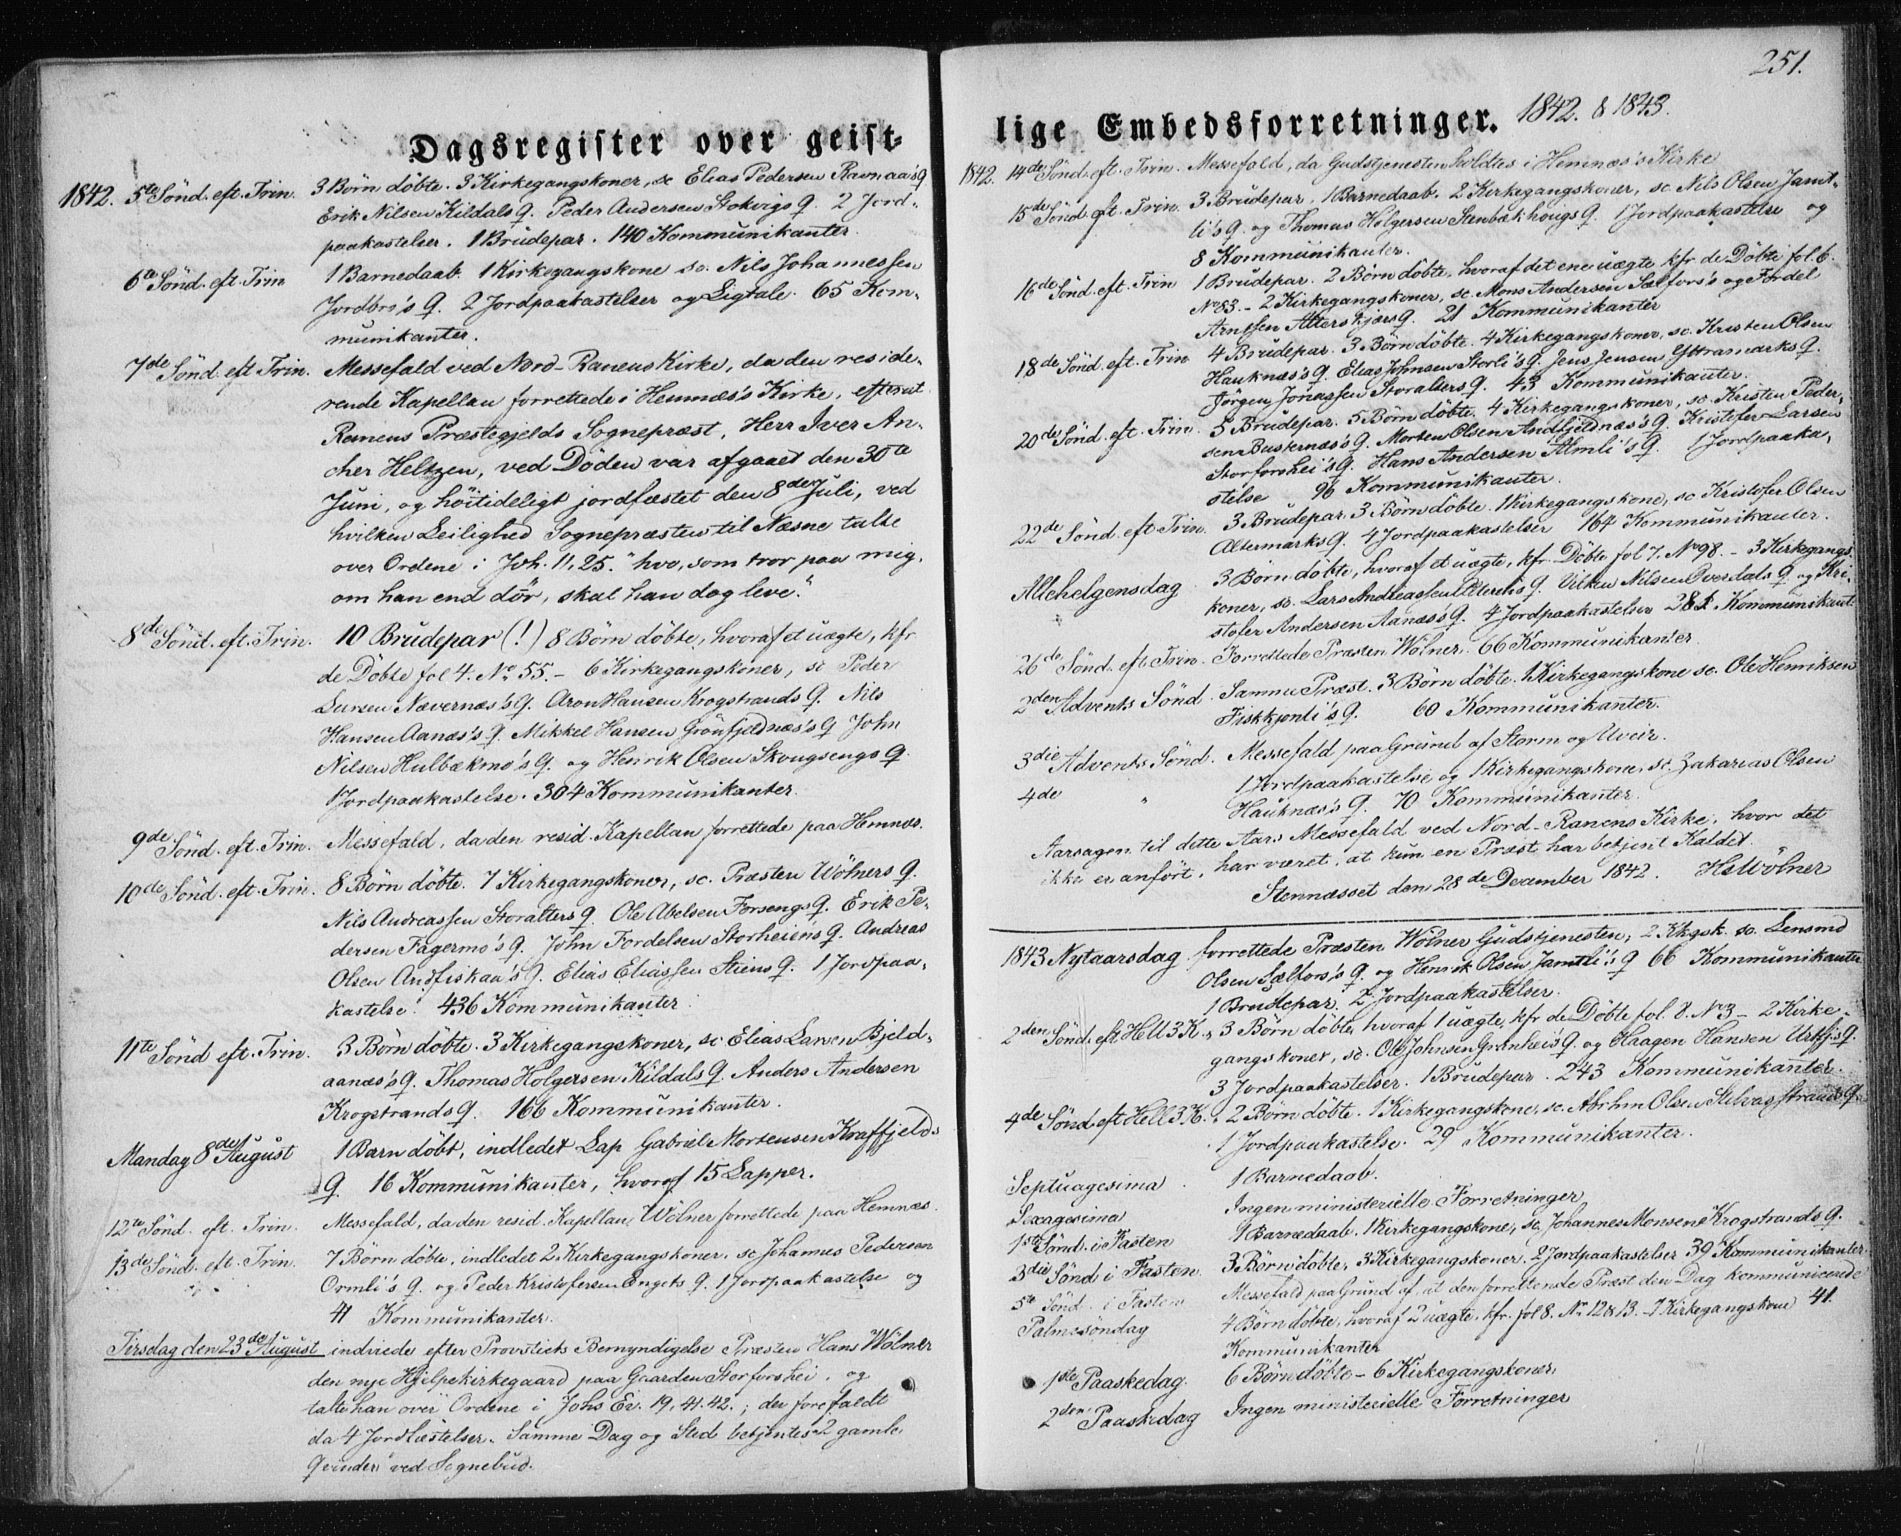 Dagsregister over geist-
1842. 5te Sönd. eft. Trin. 3 Börn döbte. 3 Kirkegangskoner, sc Elias Pedersen Ravnaa's Q
Erik Nilsen Kildals Q. Peder Andersen Stokvigs Q. 2 Jord-
paakastelser. 1 Brudepar. 140 Kommunikanter.
6te Sönd. eft. Trin 1 Barnedaab. 1 Kirkegangskone sc. Nils Johannessen
Jordbro's Q. 2 Jordpaakastelser og Ligtale. 65 Kom-
munikanter.
7de Sönd. eft. Trin. Messefald ved Nord-Ranens Kirke, da den reside-
rende Kapellan forrettede i Hemnæs's Kirke, efterat
Ranens Præstegjelds Sognepræst, Herr Iver An-
cher Heltzen, ved Döden var afgaaet den 30te
Juni, og höitideligt jordfæstet den 8de Juli, ved
hvilken Leilighed Sognepræsten til Næsne talte
over Ordene i Joh. 11, 25. "hvo, som tror paa mig,
om han end dör, skal han dog leve".
8de Sönd. eft. Trin. 10 Brudepar (!) 8 Börn döbte, hvoraf et uægte, kfr
de Döbte fol 4. No 55. - 6 Kirkegangskoner, sc Peder
Larsen Nævernæs's Q. Aron Hansen Krogstrands Q. Nils
Hansen Aanæs's Q. Mikkel Hansen Grönfjeldnæs's Q John
Nilsen Hulbækmo's Q. og Henrik Olsen Skougsengs Q.
1 Jordpaakastelse. 304 Kommunikanter.
9de Sönd. eft. Trin. Messefald, da den resid. Kapellan forrettede paa Hemnæs.
10de Sönd. eft. Trin. 8 Börn döbte. 7 Kirkegangskoner, sc. Præsten Wölners Q.
Nils Andreassen Storalters Q. Ole Abelsen Forsengs Q. Erik Pe-
dersen Fagermo's Q. John Fordelsen Storheiens Q. Andreas
Olsen Andfiskaa's Q. Elias Eliassen Steins Q. 1 Jordpaa-
kastelse. 436 Kommunikanter.
11te Sönd eft. Trin. 3 Börn döbte. 3 Kirkegangskoner, sc Elias Larsen Bjeld-
aanæs's Q. Thomas Holgersen Kildals Q. Anders Andersen
Krogstrands Q. 166 Kommunikanter.
Mandag 8de August 1 Barn döbt, indledet Lap Gabriel Mortensen Kraffjelds
Q. 16 Kommunikanter, hvoraf 15 Lapper.
12te Sönd. eft. Trin. Messefald, da den resid. Kapellan Wölner forrettede paa Hemnæs.
13de Sönd. eft. Trin. 7 Börn döbte, indledet 2 Kirkegangskoner. sc Johannes Pedersen
Ormli's Q. og Peder Kristofersen Engets Q. 1 Jordpaakastelse og
41 Kommunikanter.
Tirsdag den 23de August indviede efter Provstiets Bemyndigelse Præsten Hans Wölner
den nye Hjelpekirkegaard paa Gaarden Storforshei, og
talte han over Ordene i Johs Ev. 19, 41.42.; der forefaldt
da 4 Jordfæstelser. Samme Dag og Sted betjentes 2 gamle
Qvinder ved Sognebud.
251.
lige Embedsforretninger. 1842. & 1843.
1842. 14de Sönd. eft. Trin. Messefald, da Gudstjenesten holdtes i Hemnæs's Kirke
15de Sönd. eft. Trin. 3 Brudepar. 1 Barnedaab. 2 Kirkegangskoner, sc. Nils Olsen Jamt-
li's Q. og Thomas Holgersen Stenbækhougs Q. 1 Jordpaakastelse og
8 Kommunikanter.
16de Sönd. eft. Trin 1 Brudepar. 2 Börn döbte, hvoraf det ene uægte kfr de Döbte fol. 6.
No 83. - 2 Kirkegangskoner, sc. Mons Andersen Sælfors's og Fordel
Arntsen Alterskjærs Q. 21 Kommunikanter
18de Sönd. eft. Trin 4 Brudepar. 3 Börn döbte. 4 Kirkegangskoner, sc. Kristen Olsen
Hauknæs's Q. Elias Johnsen Storli's Q. Jens Jensen Yttramarks Q.
Jörgen Jonassen Storalters Q. 43 Kommunikanter.
20de Sönd. eft. Trin. 5 Brudepar. 5 Börn döbte. 4 Kirkegangskoner, sc. Kristen Peder-
sen Buskernæs's Q. Morten Olsen Andfjeldnæs's Q. Kristofer Larsen
Storforshei's Q. Hans Andersen Almli's Q. 1 Jordpaaka-
stelse 96 Kommunikanter.
22de Sönd. eft. Trin. 3 Brudepar. 3 Börn döbte. 1 Kirkegangskone, sc Kristofer Olsen
Altermarks Q. 4 Jordpaakastelser 164 Kommunikanter.
Allehelgensdag 3 Börn döbte, hvoraf et uægte, kfr. Döbte fol 7. No 98. - 3 Kirkegangs-
koner, sc. Lars Andreassen Q. Nilsen Overdals Q. og Kri-
stofer Andersen Aanæs's Q. 4 Jordpaakastelser 281 Kommunikant.
26de Sönd. eft. Trin. Forrettede Præsten Wölner. 66 Kommunikanter
2den Advents Sönd. Samme Præst. 3 Börn döbte. 1 Kirkegangskone sc. Ole Henriksen
Fiskkjönli's Q. 60 Kommunikanter.
3die Advents Sönd. Messefald paa Grund af Storm og Uveir.
4de " 1 Jordpaakastelse og 1 Kirkegangskone, sc. Zakarias Olsen
Hauknæs's Q. 70 Kommunikanter.
Aarsagen til dette Aars Messefald ved Nord-Ranens Kirke, hvor det
ikke er anfört, har været, at kun en Præst har betjent Kaldet.
Stennæsset den 28de December 1842. HsWölner
1843 Nytaarsdag forrettede Præsten Wölner Gudstjenesten, 2 Kkgsk. sc. Lensmd
Olsen Sælfors's Q. og Henrik Olsen Jamtli's Q 66 Kommunikanter
1 Brudepar. 2 Jordpaakastelser.
2den Sönd. eft Hell 3 K. 3 Börn döbte, hvoraf 1 uægte, kfr de Döbte fol. 8. No 3 - 2 Kirke-
gangskoner, sc. Ole Johnsen Grönheis Q. og Haagen Hansen Q.
3 Jordpaakastelser. 1 Brudepar. 243 Kommunikanter.
4de Sönd eft Hell 3 K. 2 Börn döbte. 1 Kirkegangskone, sc. Abrhm Olsen Selvagstrands Q.
1 Jordpaakastelse. 29 Kommunikanter.
Septuagesima 1 Barnedaab.
Sexagesima Ingen ministerielle Forretninger
1ste Sönd. i Fasten 1 Barnedaab. 1 Kirkegangskone, sc. Johannes Monsen Krogstrands Q.
3die Sönd i Fasten 3 Börn döbte, 3 Kirkegangskoner. 2 Jordpaakastelser 39 Kommunikanter
5te Sönd. i Fasten Messefald paa Grund af, at den forrettende Præst den Dag kommunicerede
Palmesöndag 4 Börn döbte, hvoraf 2 uægte, kfr. fol 8. No 12 & 13. - 1 Kirkegangskone 41.
Kommunikanter
1ste Paaskedag. 6 Börn döbte - 6 Kirkegangskoner.
2den Paaskedag Ingen ministerielle Forretninger